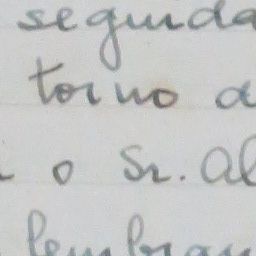 segunda
torno d
o Sr. Al
lembran